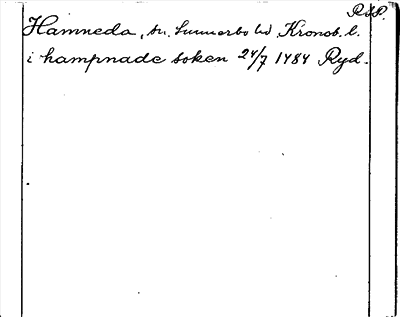 RSP.
Hamneda, sn. Sunnerbo hd, Kronob. l.
i hampnade soken 24/7 1484 Ryd.